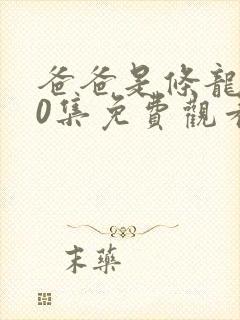 爸爸是條龍
0集免費觀看
末藥